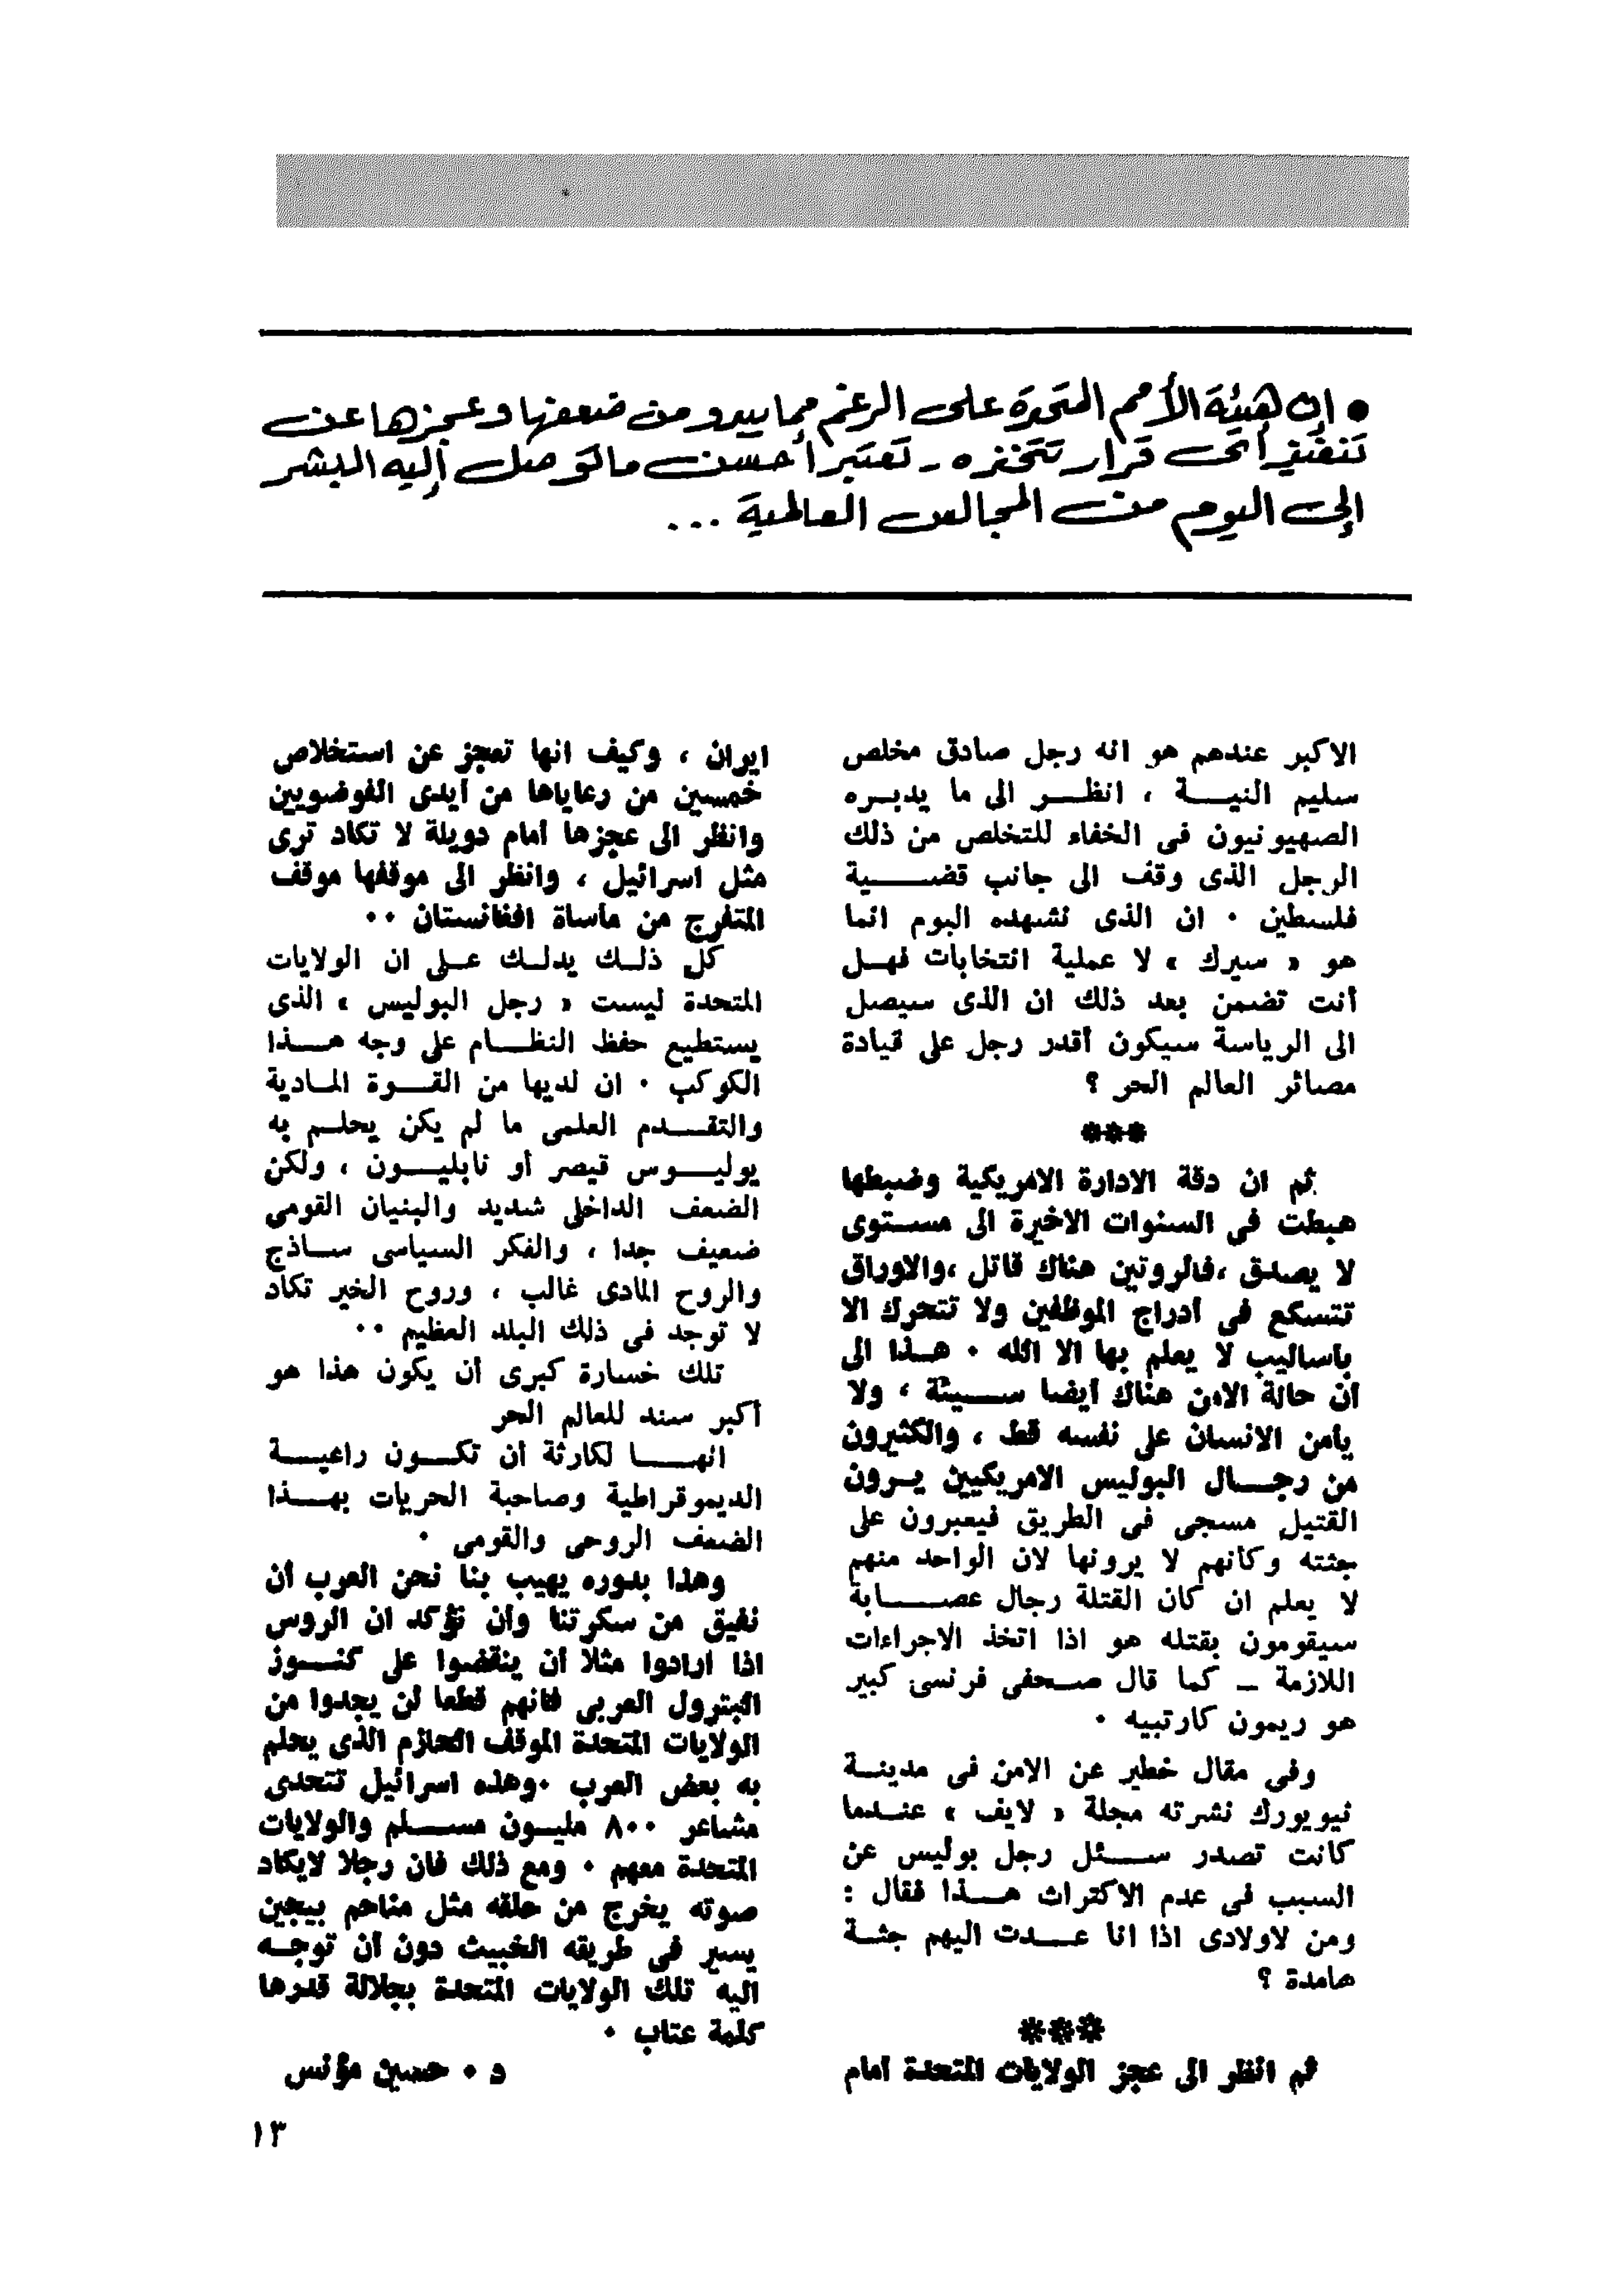 • إن هيئة الأمم المتحدة على الرغم مما يبدو من ضعفها وعجزها عن
تنفيذ أى قرار تتخذه - تعتبر أحسن ما توصل إليه البشر
إلى اليوم من المجالس العالمية ...
الاكبر عندهم هو انه رجل صادق مخلص
سليم النيـــة ، انظــر الى ما يدبــره
الصهيونيون فى الخفاء للتخلص من ذلك
الرجل الذى وقف الى جانب قضــــية
فلسطين ٠ ان الذى نشهده اليوم انما
هو « سيرك » لا عملية انتخابات فهــل
أنت تضمن بعد ذلك ان الذى سيصل
الى الرياسة سيكون أقدر رجل على قيادة
مصائر العالم الحر ؟
***
ثم ان دقة الادارة الامريكية وضبطها
هبطت فى السنوات الاخيرة الى مســتوى
لا يصدق ،فالروتين هناك قاتل ،والاوراق
تتسكع فى أدراج الموظفين ولا تتحرك الا
بأساليب لا يعلم بها الا الله ٠ هــذا الى
أن حالة الامن هناك أيضا ســـيئة ، ولا
يأمن الانسان على نفسه قط ، والكثيرون
من رجـــال البوليس الامريكيين يــرون
القتيل مسجى فى الطريق فيعبرون على
جثته وكأنهم لا يرونها لان الواحد منهم
لا يعلم ان كان القتلة رجال عصــــابة
سيقومون بقتله هو اذا اتخذ الاجراءات
اللازمة ــ كما قال صــحفى فرنسى كبير
هو ريمون كارتييه ٠
وفى مقال خطير عن الامن فى مدينــة
نيويورك نشرته مجلة « لايف » عنــدما
كانت تصدر ســــئل رجل بوليس عن
السبب فى عدم الاكتراث هـــذا فقال :
ومن لاولادى اذا انا عـــدت اليهم جثــة
هامدة ؟
***
ثم انظر الى عجز الولايات المتحدة أمام
ايران ، وكيف انها تعجز عن استخلاص
خمسين من رعاياها من أيدى الفوضويين
وانظر الى عجزها أمام دويلة لا تكاد ترى
مثل اسرائيل ، وانظر الى موقفها موقف
المتفرج من مأساة افغانستان ٠٠
كل ذلــك يدلــك عــلى ان الولايات
المتحدة ليست « رجل البوليس » الذى
يستطيع حفظ النظـــام على وجه هـــذا
الكوكب ٠ ان لديها من القـــوة المــادية
والتقـــدم العلمى ما لم يكن يحلــم به
يوليـــوس قيصر أو نابليـــون ، ولكن
الضعف الداخلى شديد والبنيان القومى
ضعيف جدا ، والفكر السياسى ســاذج
والروح المادى غالب ، وروح الخير تكاد
لا توجد فى ذلك البلد العظيم ٠٠
تلك خسارة كبرى أن يكون هذا هو
أكبر سند للعالم الحر
انهـــــا لكارثة أن تكـــون راعيـــة
الديموقراطية وصاحبة الحريات بهـــذا
الضعف الروحى والقومى ٠
وهذا بدوره يهيب بنا نحن العرب أن
نفيق من سكرتنا وأن نؤكد ان الروس
اذا ارادوا مثلا أن ينقضوا على كنـــوز
البترول العربى فانهم قطعا لن يجدوا من
الولايات المتحدة الموقف الحازم الذى يحلم
به بعض العرب ٠وهذه اسرائيل تتحدى
مشاعر ٨٠٠ مليــون مســـلم والولايات
المتحدة معهم ٠ ومع ذلك فان رجلا لايكاد
صوته يخرج من حلقه مثل مناحم بيجين
يسير فى طريقه الخبيث دون أن توجــه
اليه تلك الولايات المتحدة بجلالة قدرها
كلمة عتاب ٠
د ٠ حسين مؤنس
١٣